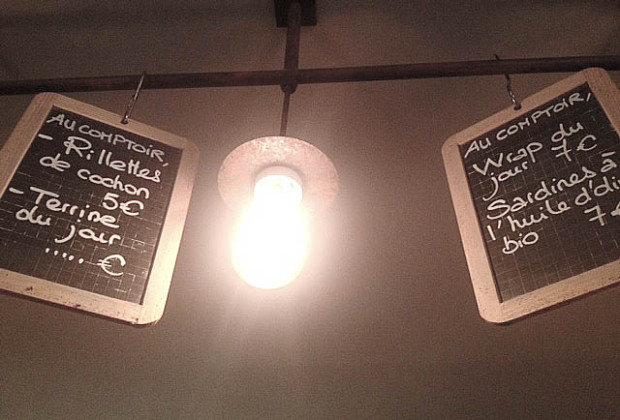 AU COMPTOIR,
- Rillettes
de cochon
5€
- Terrine
du jour
..... €
AU COMPTOIR,
Wrap du
jour 7€
Sardines à
l'huile d'oli
bio 7€